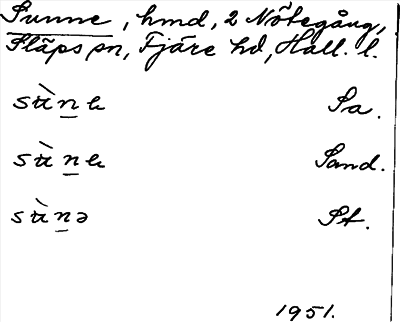 Sunne, hmd, 2 Nötegång,
Släps sn, Fjäre hd, Hall. l.
sùnɐ Sa.
sùnɐ Sand.
sùnə St.
1951.